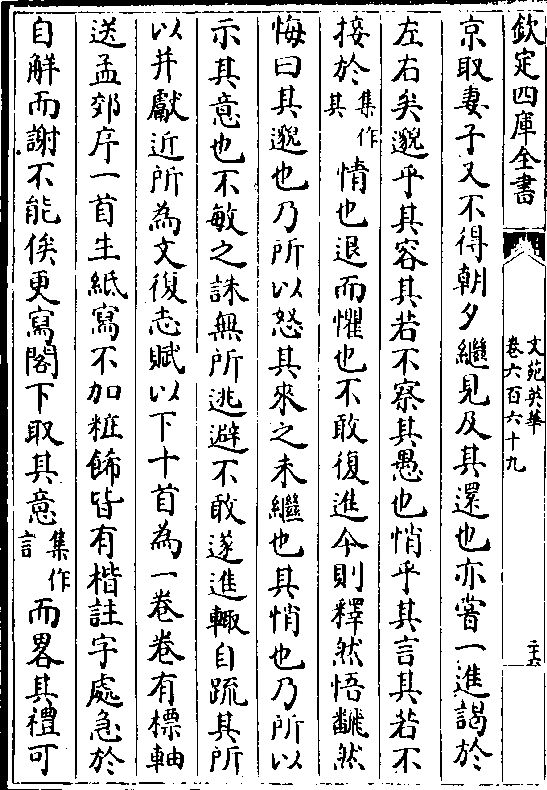 欽定四庫全書
文苑英華
卷六百六十九
二十六
京取妻子又不得朝夕繼見及其還也亦嘗一進謁於
左右矣邈乎其容其若不察其愚也悄乎其言其若不
接於其集作情也退而懼也不敢復進今則釋然悟翻然
悔曰其邈也乃所以怒其來之未繼也其悄也乃所以
示其意也不敏之誅無所逃避不敢遂進輙自䟽其所
以并獻近所為文復志賦以下十首為一卷卷有標軸
送孟郊序一首生紙寫不加粧餙皆有楷註字處急於
自解而謝不能俟更寫閣下取其意集作言而畧其禮可